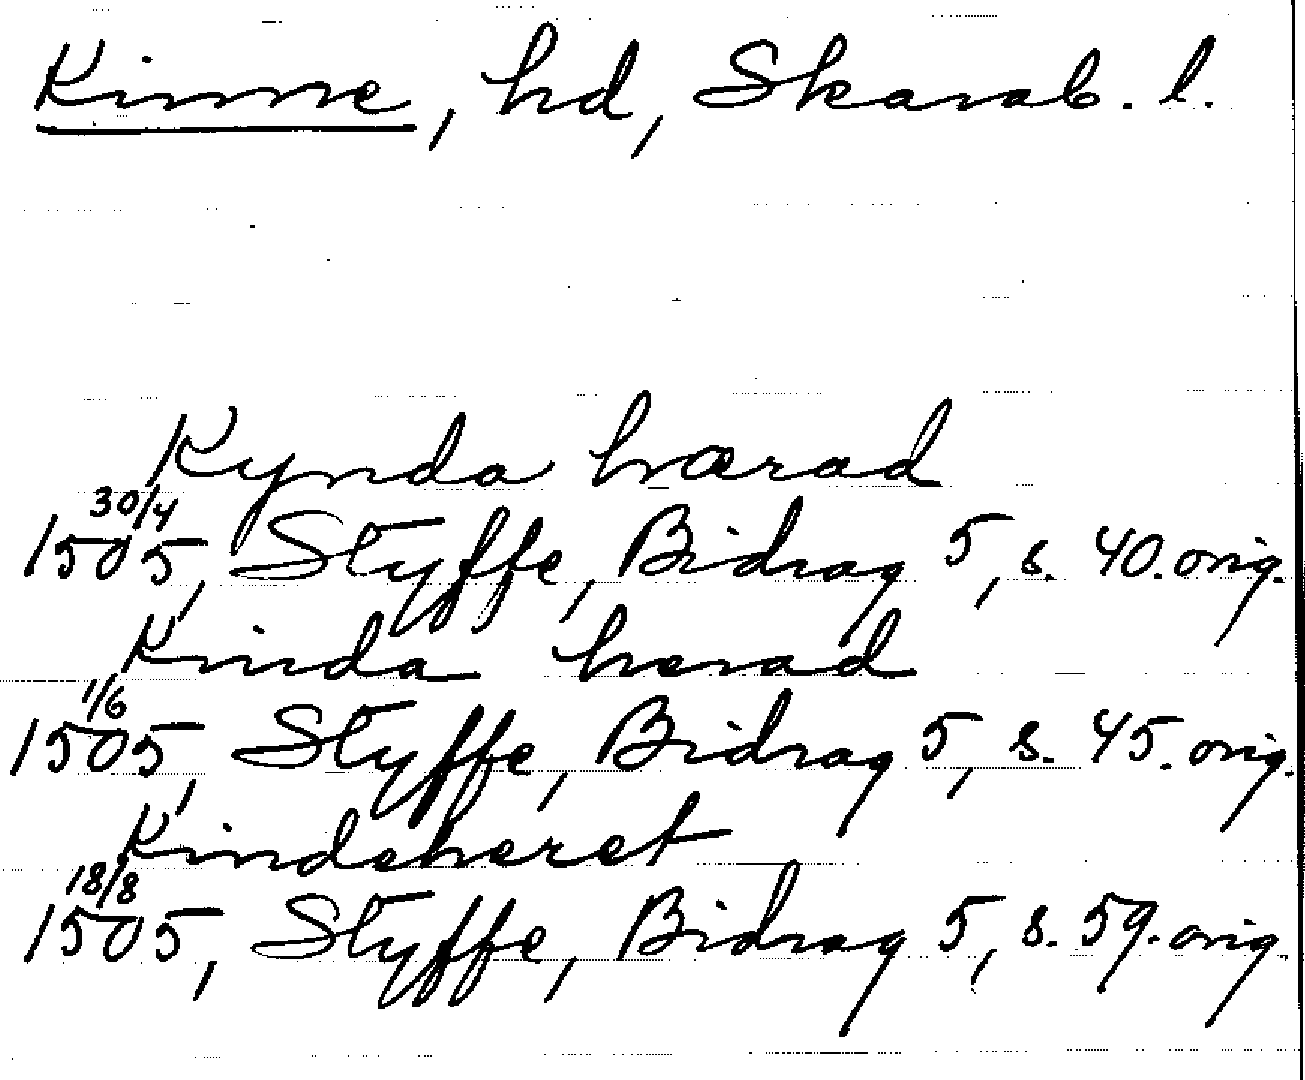 Kinne, hd, Skarab. l.
Kynda hærad
30/4
1505, Styffe, Bidrag 5, s. 40. orig.
Kinda herad
1/6
1505, Styffe, Bidrag 5, s. 45. orig.
Kindeheret
18/8
1505, Styffe, Bidrag 5, s. 59. orig.